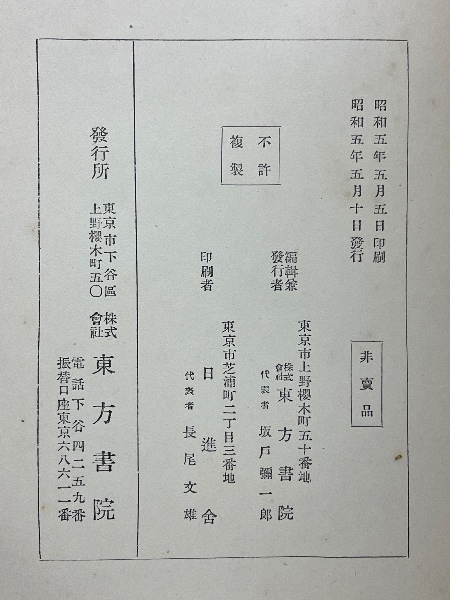 昭和五年五月五日印刷
昭和五年五月十日發行
非賣品
不許
複製
編輯兼
發行者
東京市上野櫻木町五十番地
株式
會社
東方書院
代表者 坂戸彌一郎
印刷者
東京市芝浦町二丁目三番地
日進舍
代表者 長尾文雄
發行所
東京市下谷區
上野櫻木町五〇
株式
會社
東方書院
電話下谷四二五九番
振替口座東京六八六一一番